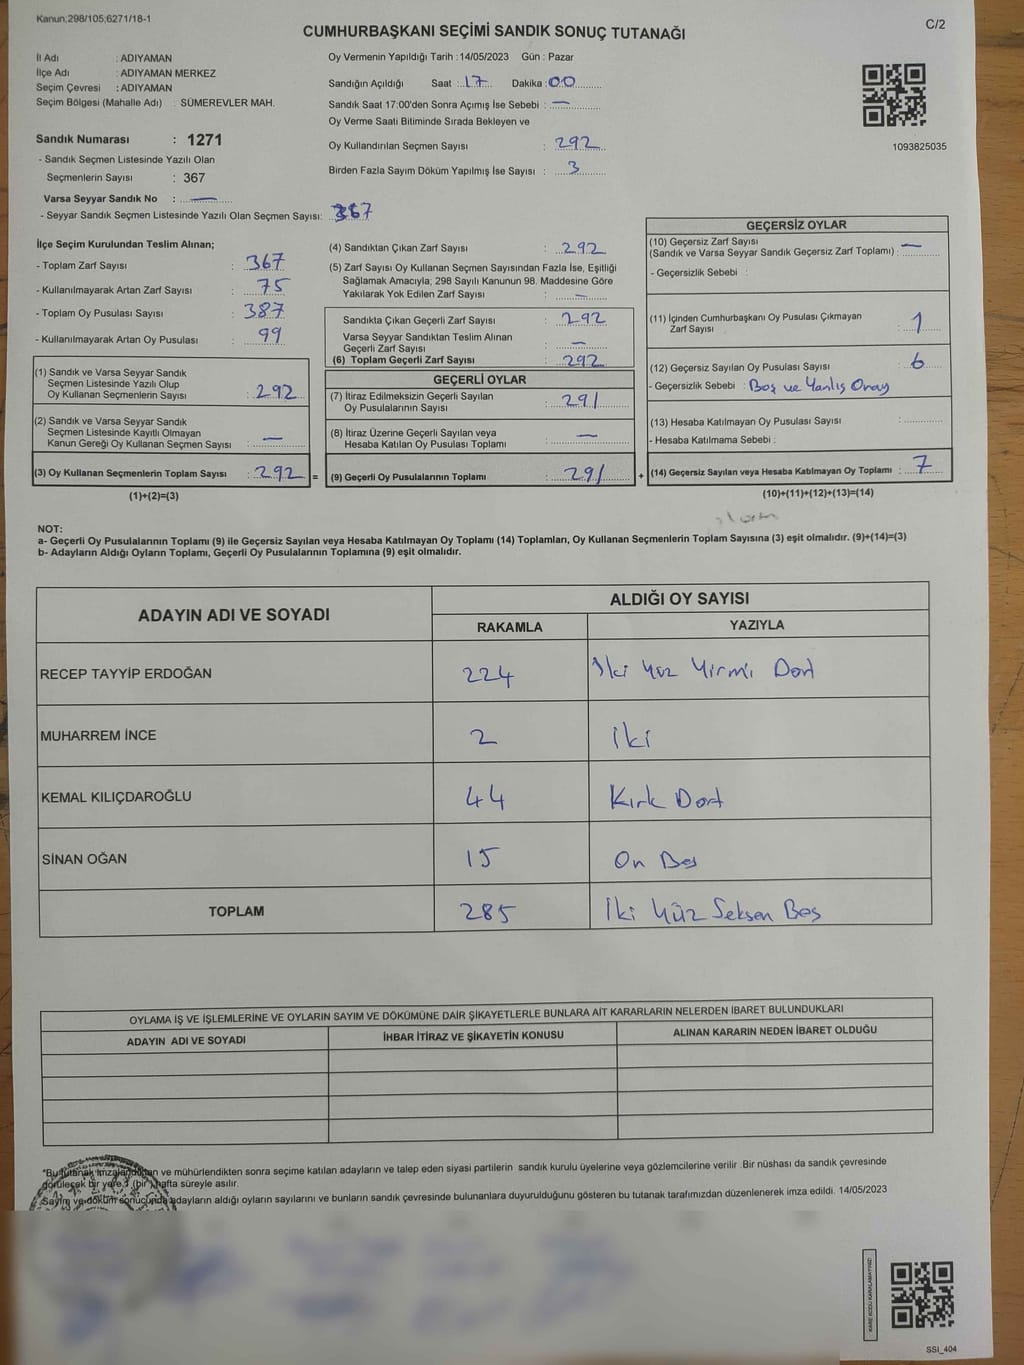 Kanun;298/105;6271/18-1
C/2
CUMHURBAŞKANI SEÇİMİ SANDIK SONUÇ TUTANAĞI
İl Adı : ADIYAMAN
İlçe Adı : ADIYAMAN MERKEZ
Seçim Çevresi : ADIYAMAN
Seçim Bölgesi (Mahalle Adı) : SÜMEREVLER MAH.
Sandık Numarası : 1271
- Sandık Seçmen Listesinde Yazılı Olan
Seçmenlerin Sayısı : 367
Varsa Seyyar Sandık No : —
- Seyyar Sandık Seçmen Listesinde Yazılı Olan Seçmen Sayısı: 367
Oy Vermenin Yapıldığı Tarih : 14/05/2023 Gün : Pazar
Sandığın Açıldığı Saat : 17 Dakika : 00
Sandık Saat 17:00'den Sonra Açımış İse Sebebi : —
Oy Verme Saati Bitiminde Sırada Bekleyen ve
Oy Kullandırılan Seçmen Sayısı : 292
Birden Fazla Sayım Döküm Yapılmış İse Sayısı : 3
1093825035
İlçe Seçim Kurulundan Teslim Alınan;
- Toplam Zarf Sayısı : 367
- Kullanılmayarak Artan Zarf Sayısı : 75
- Toplam Oy Pusulası Sayısı : 387
- Kullanılmayarak Artan Oy Pusulası : 99
(1) Sandık ve Varsa Seyyar Sandık
Seçmen Listesinde Yazılı Olup
Oy Kullanan Seçmenlerin Sayısı : 292
(2) Sandık ve Varsa Seyyar Sandık
Seçmen Listesinde Kayıtlı Olmayan
Kanun Gereği Oy Kullanan Seçmen Sayısı : —
(3) Oy Kullanan Seçmenlerin Toplam Sayısı : 292 =
(1)+(2)=(3)
(4) Sandıktan Çıkan Zarf Sayısı : 292
(5) Zarf Sayısı Oy Kullanan Seçmen Sayısından Fazla İse, Eşitliği
Sağlamak Amacıyla; 298 Sayılı Kanunun 98. Maddesine Göre
Yakılarak Yok Edilen Zarf Sayısı : —
Sandıkta Çıkan Geçerli Zarf Sayısı : 292
Varsa Seyyar Sandıktan Teslim Alınan
Geçerli Zarf Sayısı : —
(6) Toplam Geçerli Zarf Sayısı : 292
GEÇERLİ OYLAR
(7) İtiraz Edilmeksizin Geçerli Sayılan
Oy Pusulalarının Sayısı : 291
(8) İtiraz Üzerine Geçerli Sayılan veya
Hesaba Katılan Oy Pusulası Toplamı : —
(9) Geçerli Oy Pusulalarının Toplamı : 291 +
GEÇERSİZ OYLAR
(10) Geçersiz Zarf Sayısı
(Sandık ve Varsa Seyyar Sandık Geçersiz Zarf Toplamı) : —
- Geçersizlik Sebebi :
(11) İçinden Cumhurbaşkanı Oy Pusulası Çıkmayan
Zarf Sayısı : 1
(12) Geçersiz Sayılan Oy Pusulası Sayısı : 6
- Geçersizlik Sebebi : Boş ve Yanlış Onay
(13) Hesaba Katılmayan Oy Pusulası Sayısı :
- Hesaba Katılmama Sebebi :
(14) Geçersiz Sayılan veya Hesaba Katılmayan Oy Toplamı : 7
(10)+(11)+(12)+(13)=(14)
NOT:
a- Geçerli Oy Pusulalarının Toplamı (9) ile Geçersiz Sayılan veya Hesaba Katılmayan Oy Toplamı (14) Toplamları, Oy Kullanan Seçmenlerin Toplam Sayısına (3) eşit olmalıdır. (9)+(14)=(3)
b- Adayların Aldığı Oyların Toplamı, Geçerli Oy Pusulalarının Toplamına (9) eşit olmalıdır.
ADAYIN ADI VE SOYADI
ALDIĞI OY SAYISI
RAKAMLA YAZIYLA
RECEP TAYYİP ERDOĞAN 224 İki Yüz Yirmi Dört
MUHARREM İNCE 2 İki
KEMAL KILIÇDAROĞLU 44 Kırk Dört
SİNAN OĞAN 15 On Beş
TOPLAM 285 İki Yüz Seksen Beş
OYLAMA İŞ VE İŞLEMLERİNE VE OYLARIN SAYIM VE DÖKÜMÜNE DAİR ŞİKAYETLERLE BUNLARA AİT KARARLARIN NELERDEN İBARET BULUNDUKLARI
ADAYIN ADI VE SOYADI İHBAR İTİRAZ VE ŞİKAYETİN KONUSU ALINAN KARARIN NEDEN İBARET OLDUĞU
*Bu tutanak imzalandıktan ve mühürlendikten sonra seçime katılan adayların ve talep eden siyasi partilerin sandık kurulu üyelerine veya gözlemcilerine verilir. Bir nüshası da sandık çevresinde
görülecek bir yere 1 (bir) hafta süreyle asılır.
Sayım ve döküm sonucunda adayların aldığı oyların sayılarını ve bunların sandık çevresinde bulunanlara duyurulduğunu gösteren bu tutanak tarafımızdan düzenlenerek imza edildi. 14/05/2023
KARE KODU KARALAMAYINIZ!
SSI_404